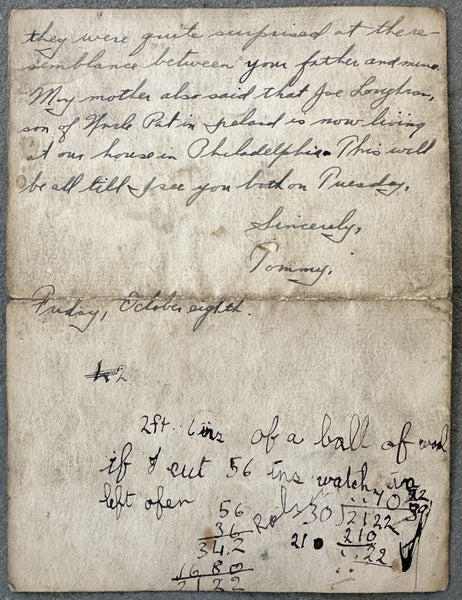 they were quite surprised at the re-
semblance between your father and mine.
My mother also said that Joe Loughran,
son of Uncle Pat in Ireland is now living
at our house in Philadelphia. This will
be all till I see you both on Tuesday.
Sincerely,
Tommy.
Friday, October eighth.
2
2ft. 6 ins of a ball of
if I cut 56 ins watch in
left ofen
56
36
342
1680
2122
30)2122
70 22
210
22
210